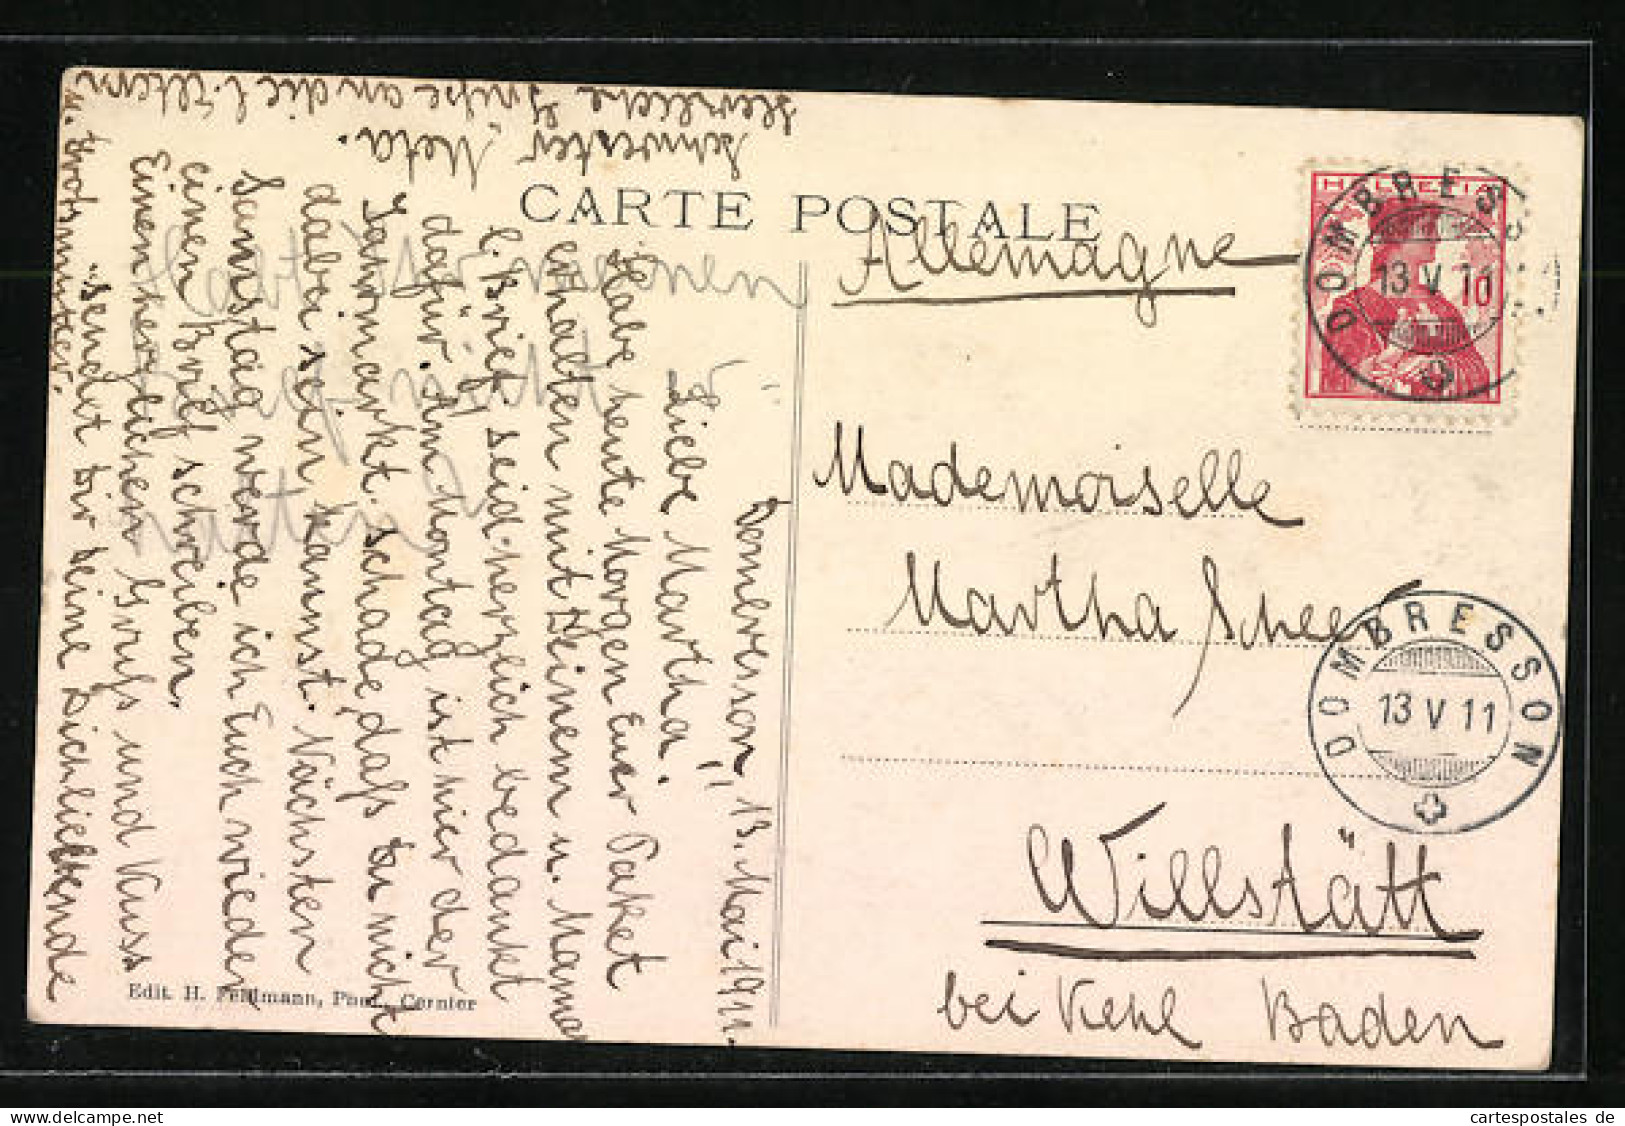 CARTE POSTALE
Allemagne
HELVETIA
10
DOMBRESSON
13 V 11
Mademoiselle
Martha Scheer
DOMBRESSON
13 V 11
Willstätt
bei Kehl Baden
Dombresson, 13. Mai 1911.
Liebe Martha.
Habe heute Morgen Euer Paket
erhalten mit Deinem u. Mama
l. Brief, seid herzlich bedankt
dafür. Am Montag ist hier der
Jahrmarkt. Schade, dass Du nicht
dabei sein kannst. Nächsten
Samstag werde ich Euch wieder
einen Brief schreiben.
Einen herzlichen Gruss und Kuss
sendet Dir Deine Dichliebende
Schwester Meta.
Herzliche Grüße an die l. Eltern
u. Großmutter.
nicht
Edit. H. Feldmann, Phot., Cernier
cartespostales de